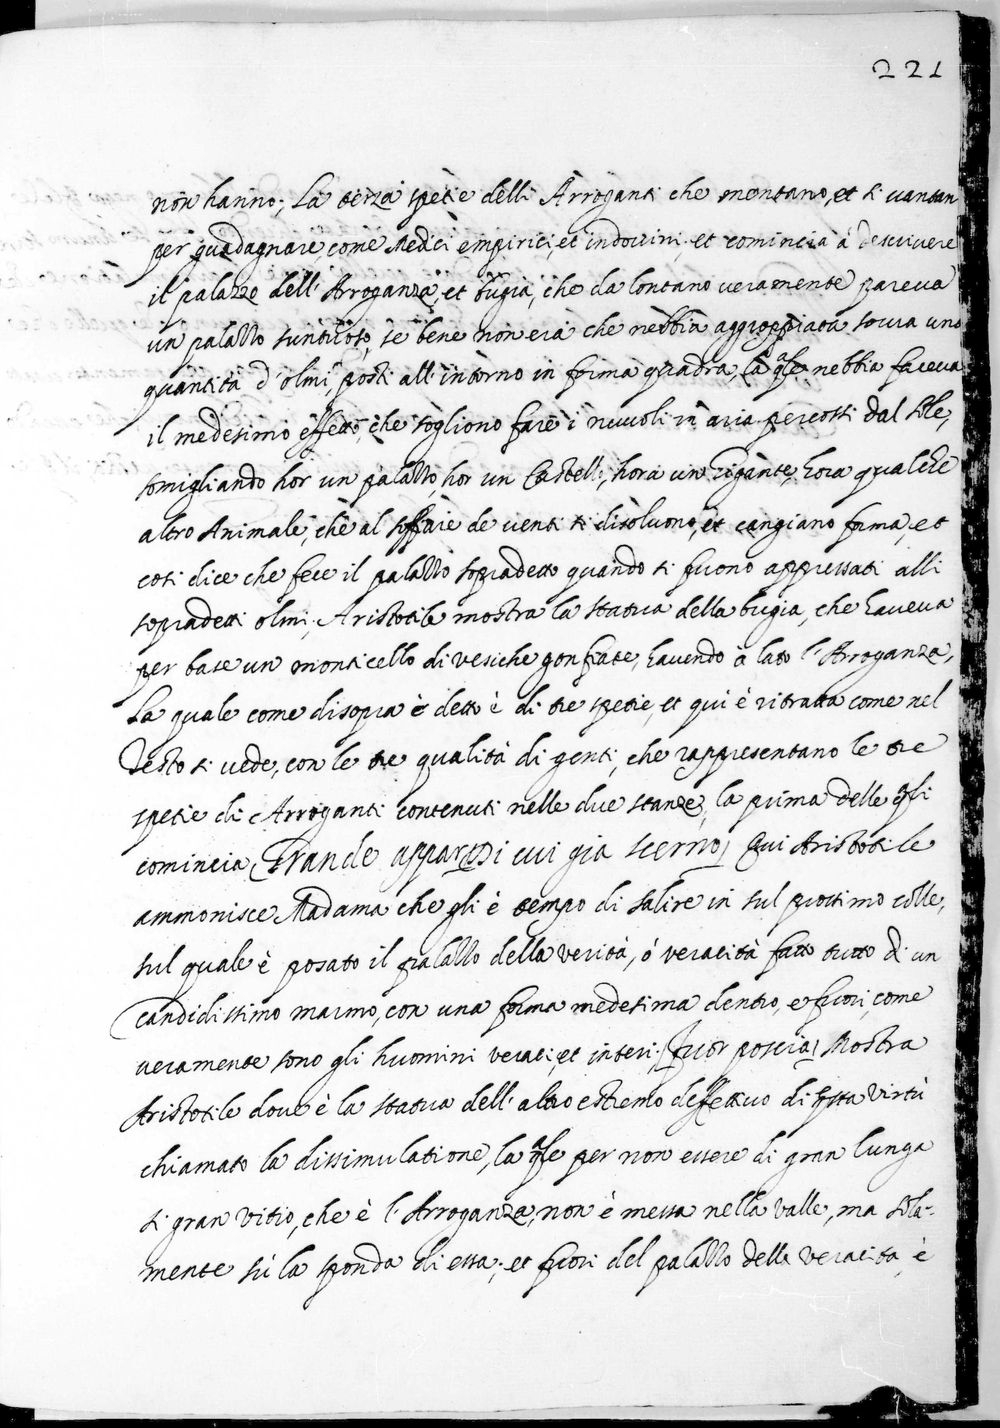 221
non hanno; La terza spetie delli Arroganti che mentano, et si vantan
per guadagnare, come Medici empirici, et indovini, et comincia à descrivere
il palazzo dell' Arroganza, et bugia, che da lontano veramente pareva
un palazzo suntuoso, se bene non era che nebbia aggroppata sovra una
quantità d' olmi, posti all' intorno in forma quadra, la qle nebbia faceva
il medesimo effetto, che sogliono fare i nuvoli in aria percossi dal sole,
somigliando hor un palazzo, hor un Castell, hora un Gigante, hora qualche
altro Animale, che al soffiare de venti si disolvono, et cangiano forma, et
cosi dice che fece il palazzo sopradetto quando si furono appressati alli
sopradetti olmi; Aristotile mostra la statua della bugia, che haveva
per base un monticello di vesiche gonfiate, havendo à lato l' Arroganza,
La quale come disopra è detto è di tre spetie, et qui è ritratta come nel
Testo si vede, con le tre qualità di genti, che rappresentano le tre
spetie di Arroganti contenuti nelle due stanze, la prima delle qli
comincia (Grande apparsi cui gia scerno) Qui Aristotile
ammonisce Madama che gli è tempo di salire in sul prossimo colle,
sul quale è posato il palazzo della verità, ó veracità fatto tutto d' un
candidissimo marmo, con una forma medesima dentro, e fuori, come
veramente sono gli huomini veraci, et interi. (Fuor poscia) Mostra
Aristotile dove è la statua dell' altro estremo deffettivo di questa virtù
chiamato la dissimulatione, la qle per non essere di gran lunga
si gran vitio, che è l' Arroganza, non è messa nella valle, ma sola-
mente sù la sponda di essa; et fuori del palazzo della veracità, è